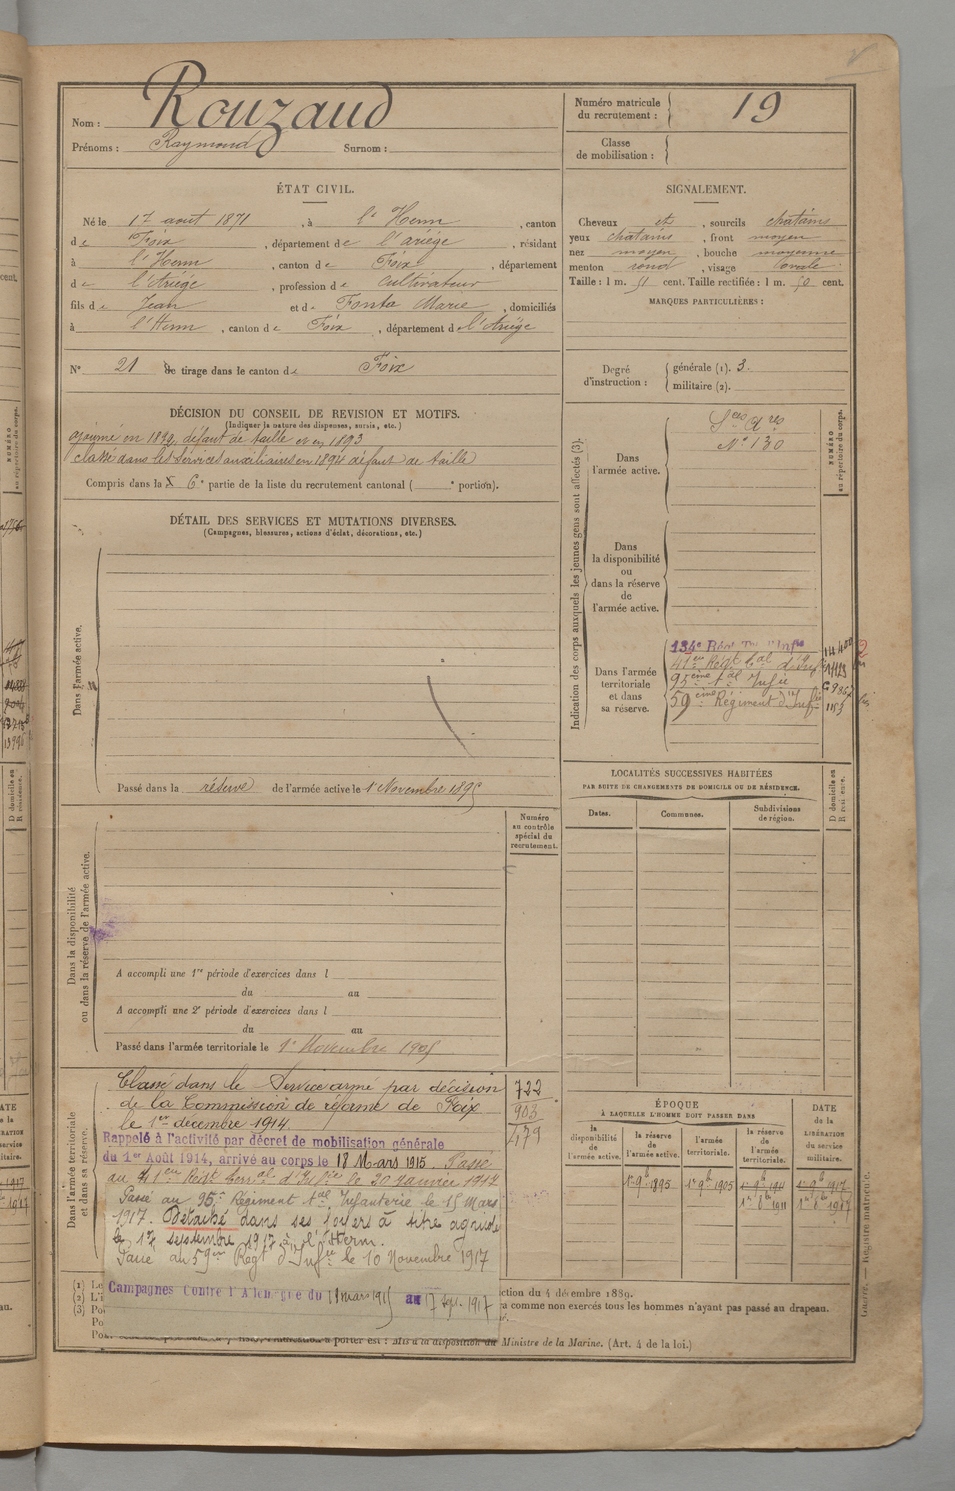 Nom : Rouzaud
Prénoms : Raymond Surnom :
Numéro matricule du recrutement : 19
Classe de mobilisation :
ÉTAT CIVIL.
Né le 17 aout 1871, à l'Herm, canton
de Foix, département de l'ariège, résidant
à l'Herm, canton de Foix, département
de l'Ariège, profession de Cultivateur
fils de Jean et de Fonta Marie, domiciliés
à l'Herm, canton de Foix, département de l'Ariège
N° 21 de tirage dans le canton de Foix
SIGNALEMENT.
Cheveux et, sourcils chatains
yeux chatains, front moyen
nez moyen, bouche moyenne
menton rond, visage ovale
Taille : 1 m. 51 cent. Taille rectifiée : 1 m. 50 cent.
MARQUES PARTICULIÈRES :
Degré d'instruction : générale (1). 3.
militaire (2).
DÉCISION DU CONSEIL DE REVISION ET MOTIFS.
(Indiquer la nature des dispenses, sursis, etc.)
ajourné en 1892, défaut de taille et en 1893
classé dans les services auxiliaires en 1894 défaut de taille
Compris dans la 6e partie de la liste du recrutement cantonal ( e portion).
DÉTAIL DES SERVICES ET MUTATIONS DIVERSES.
(Campagnes, blessures, actions d'éclat, décorations, etc.)
Dans l'armée active.
Passé dans la réserve de l'armée active le 1er Novembre 1895
Indication des corps auxquels les jeunes gens sont affectés (3).
NUMÉRO au répertoire du corps.
Dans l'armée active.
Sces Ares
N° 130
Dans la disponibilité ou dans la réserve de l'armée active.
Dans l'armée territoriale et dans sa réserve.
134e Régt Ter d'Infie
41eme Régt tal d'Inf
95eme tal Infie
59eme Régiment d'Infie
1155
LOCALITÉS SUCCESSIVES HABITÉES
PAR SUITE DE CHANGEMENTS DE DOMICILE OU DE RÉSIDENCE.
Dates. Communes. Subdivisions de région. D domicile ou R résidence.
Dans la disponibilité ou dans la réserve de l'armée active.
Numéro au contrôle spécial du recrutement.
A accompli une 1re période d'exercices dans l
du au
A accompli une 2e période d'exercices dans l
du au
Passé dans l'armée territoriale le 1er Novembre 1905
Dans l'armée territoriale et dans sa réserve.
Classé dans le Service armé par décision 722
de la Commission de réforme de Foix 903
le 1er décembre 1914. 479
Rappelé à l'activité par décret de mobilisation générale
du 1er Août 1914, arrivé au corps le 18 Mars 1915. Passé
au 41eme Régt terral d'Infie le 20 Janvier 1917
Passé au 95e Régiment tal Infanterie le 15 Mars
1917. Détaché dans ses foyers à titre agricole
le 17 septembre 1917 à l'Herm.
Passé au 59eme Régt d'Infie le 10 Novembre 1917
Campagnes Contre l'Allemagne du 18 mars 1915 au 17 Sept. 1917
ÉPOQUE
À LAQUELLE L'HOMME DOIT PASSER DANS
la disponibilité de l'armée active.
la réserve de l'armée active.
l'armée territoriale.
la réserve de l'armée territoriale.
DATE de la LIBÉRATION du service militaire.
1er 9bre 1895 1er 9bre 1905 1er 9bre 1911 1er 9bre 1917
1er 8bre 1911 1er 8bre 1917
ction du 4 décembre 1889.
a comme non exercés tous les hommes n'ayant pas passé au drapeau.
à porter est : Mis à la disposition du Ministre de la Marine. (Art. 4 de la loi.)
Guerre. — Registre matricule.